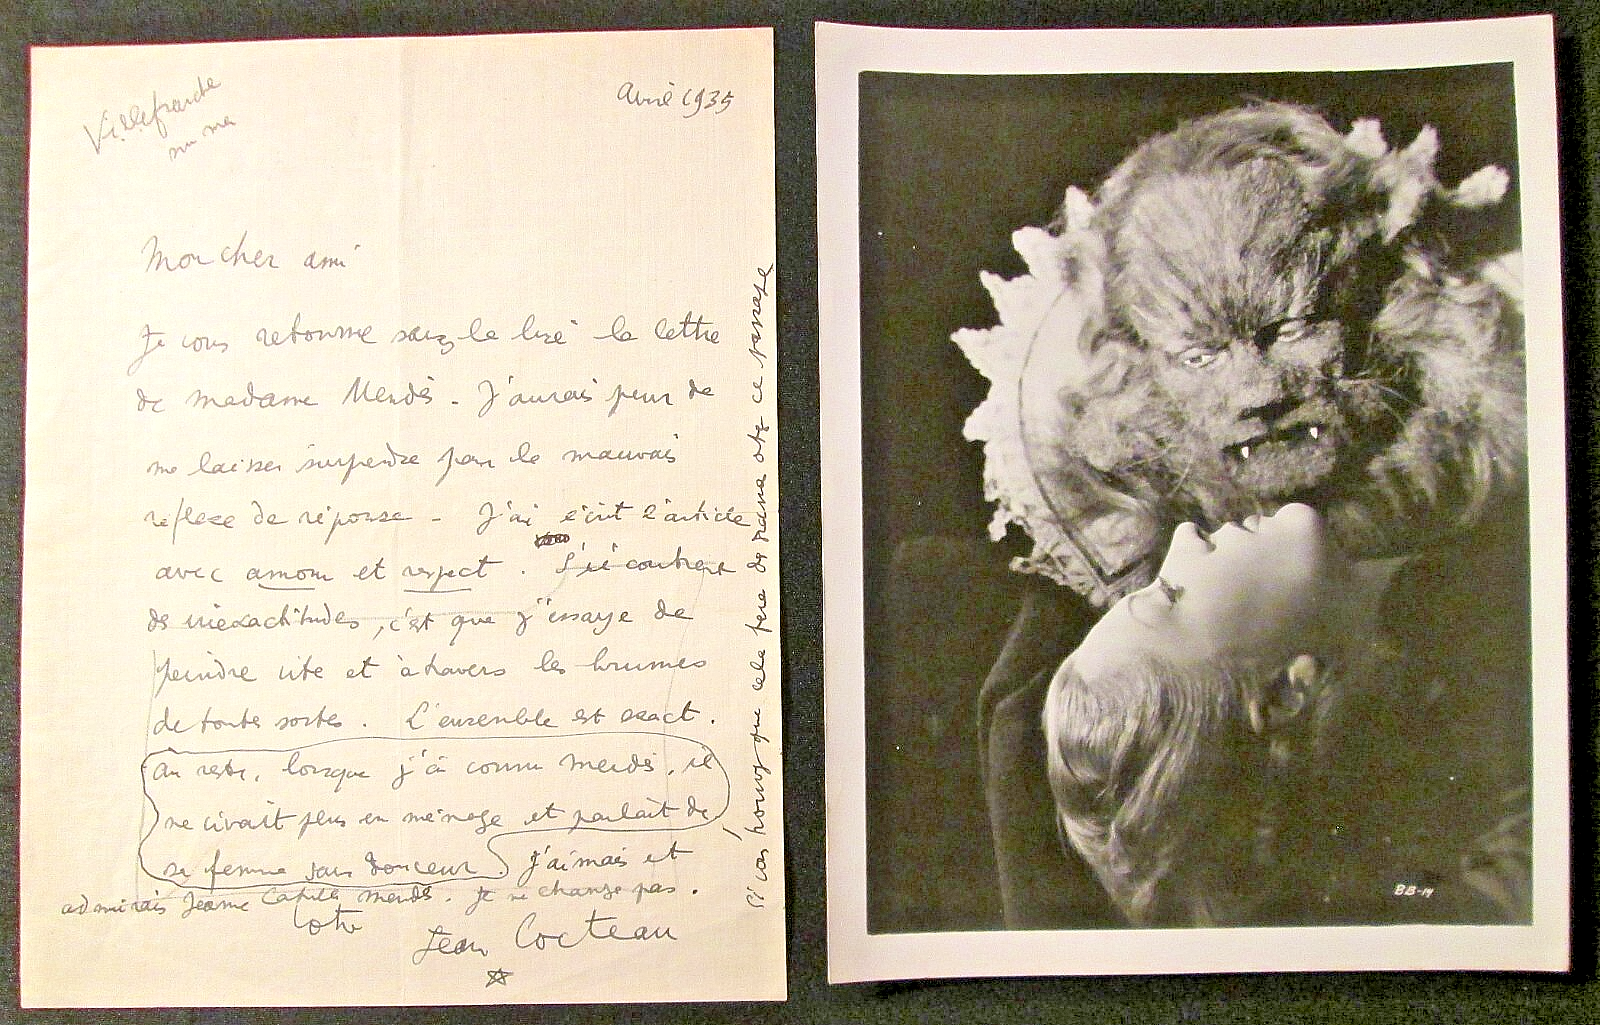 Villefranche
sur mer
Avril 1935
Mon cher ami
Je vous retourne sans la lire la lettre
de madame Mendès. J'aurais peur de
me laisser surprendre par le mauvais
reflexe de réponse - J'ai écrit l'article
avec amour et respect. S'il contient
des inexactitudes, c'est que j'essaye de
peindre vite et à travers les brumes
de toutes sortes. L'ensemble est exact.
Au reste, lorsque j'ai connu Mendès, il
ne vivait plus en ménage et parlait de
sa femme sans douceur. J'aimais et
admirais Jeanne Catulle Mendès. Je ne change pas.
Votre
Jean Cocteau
Si vous trouvez que cela fera de la peine otez ce passage
BB-14